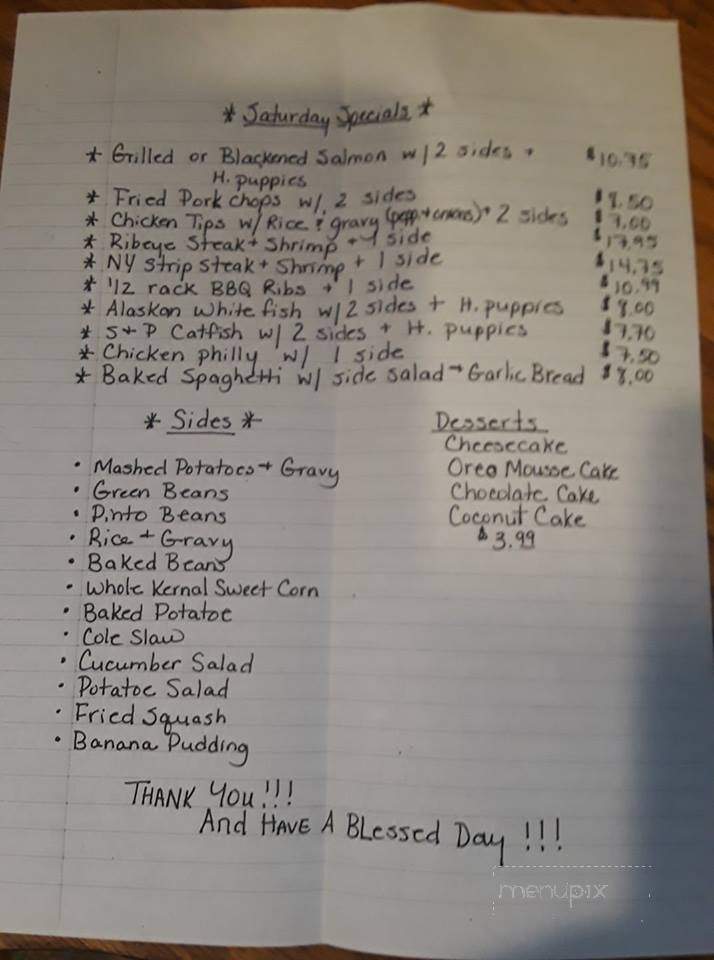 * Saturday Specials *
* Grilled or Blackened Salmon w/ 2 sides + $10.75
H. puppies
* Fried Pork chops w/ 2 sides $8.50
* Chicken Tips w/ Rice & gravy (pepp + onions) + 2 sides $7.00
* Ribeye Steak + Shrimp + 1 side $17.95
* NY Strip Steak + Shrimp + 1 side $14.75
* 1/2 rack BBQ Ribs + 1 side $10.99
* Alaskan White fish w/ 2 sides + H. puppies $8.00
* S + P Catfish w/ 2 sides + H. puppies $7.70
* Chicken philly w/ 1 side $7.50
* Baked Spaghetti w/ side salad + Garlic Bread $8.00
* Sides *
• Mashed Potatoes + Gravy
• Green Beans
• Pinto Beans
• Rice + Gravy
• Baked Beans
• Whole Kernal Sweet Corn
• Baked Potatoe
• Cole Slaw
• Cucumber Salad
• Potatoe Salad
• Fried Squash
• Banana Pudding
Desserts
Cheesecake
Oreo Mousse Cake
Chocolate Cake
Coconut Cake
$3.99
THANK YOU!!!
And HAVE A BLessed Day !!!
menupix